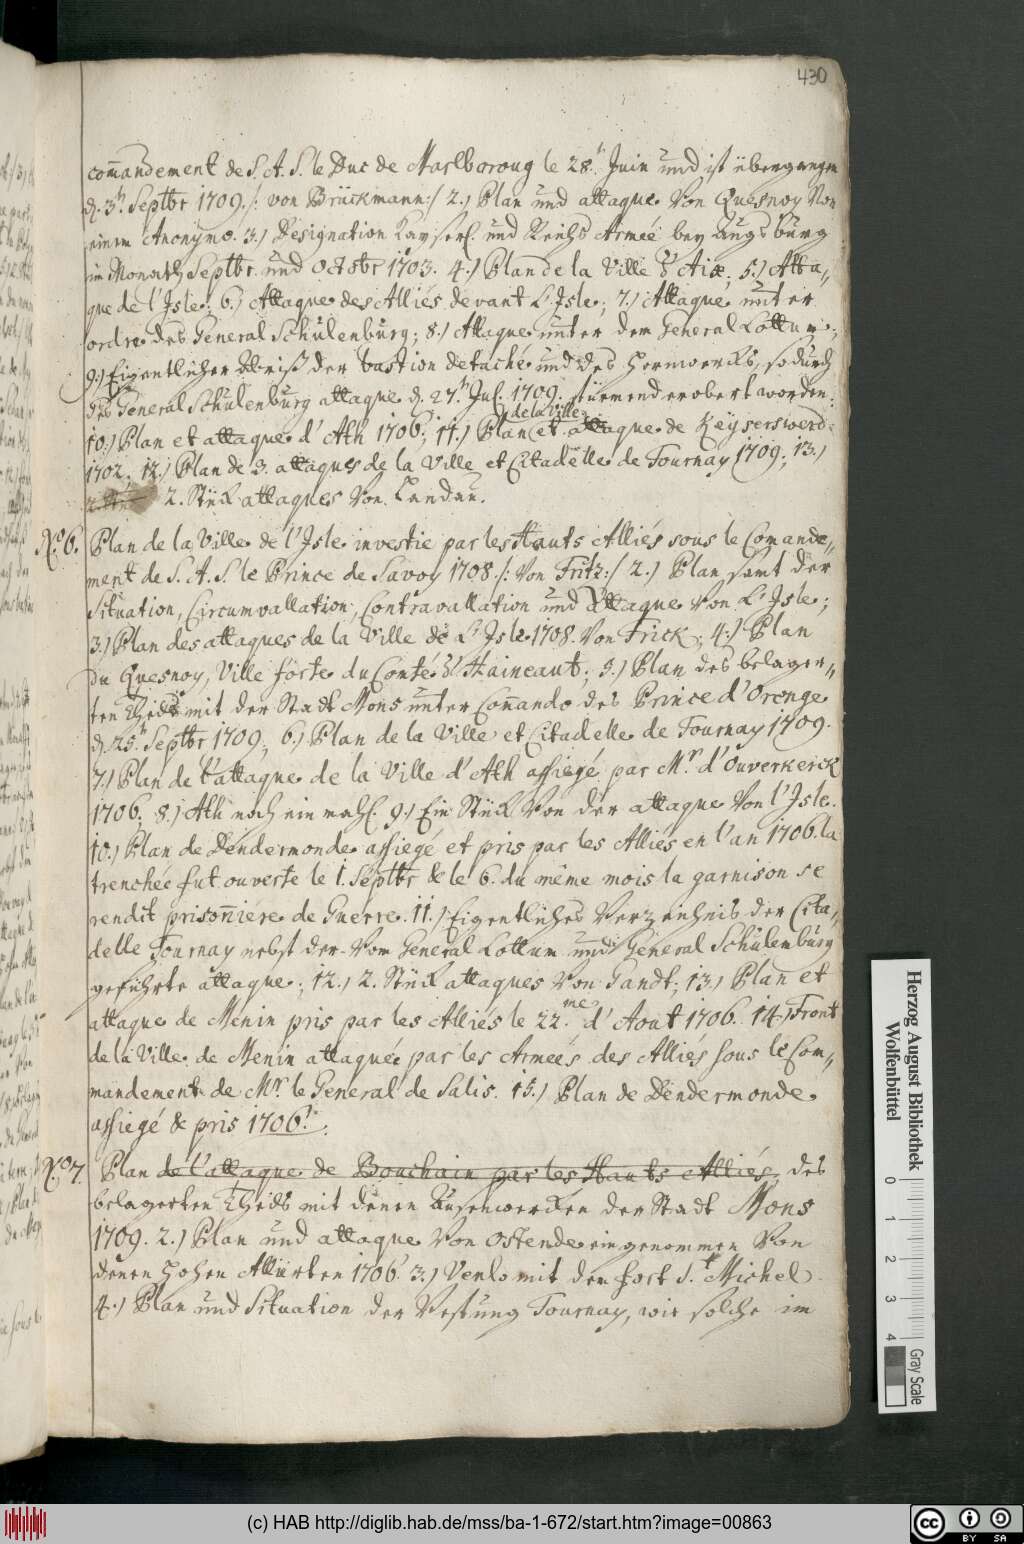 430
com̄andement de S. A. S. le Duc de Marlboroug le 28.t Juin und ist übergangen
d. 3t Septbr 1709. /: von Brückmann :/ 2.) Plan und attaque von Quesnoy von
einem Anonymo. 3.) Designation Kayserl. und Reichs Armée bey Augsburg
im Monath Septbr. und Octobr 1703. 4.) Plan de la Ville d'Aix, 5.) Atta-
que de l'Isle; 6.) Attaque des Alliés devant L'Isle; 7.) Attaque unter
ordre des General Schulenburg; 8.) Attaque unter dem General Lottum;
9.) Eigentlicher Abriß der bastion detaché und des Hornwercks, so durch
des General Schulenburg attaque d. 27.t Jul. 1709. stürmend erobert worden;
10.) Plan et attaque d'Ath 1706.; 11.) Plan de la Ville et attaque de Keyserswerd
1702. 12.) Plan de 3. attaques de la Ville et Citadelle de Tournay 1709; 13.)
2. Stük attaques von Landau.
No. 6. Plan de la Ville de l'Isle investie par les Hauts Alliés sous le Comande-
ment de S. A. S. le Prince de Savoy 1708. /: von Fritz :/ 2.) Plan samt der
Situation, Circumvallation, Contravallation und Attaque von L'Isle;
3.) Plan des attaques de la Ville de L'Isle 1708. von Frick; 4.) Plan
du Quesnoy, Ville forte du Conté d'Haineaut; 5.) Plan des belager-
ten Theils mit der Stadt Mons unter Com̄ando des Prince d'Orenge
d. 25.t Septbr 1709; 6.) Plan de la Ville et Citadelle de Tournay 1709.
7.) Plan de l'attaque de la Ville d'Ath assiegé par Mr. d'Ouverkerck
1706; 8.) Ath noch ein mahl. 9.) Ein Stük von der attaque von l'Isle.
10.) Plan de Dendermonde assiegé et pris par les Alliés en l'an 1706. la
trenchée fut ouverte le 1. Septbr & le 6. du même mois la garnison se
rendit prison̄iére de Guerre. 11.) Eigentliches Verzeichnis der Cita-
delle Tournay nebst der vom General Lottum und General Schulenburg
geführte attaque; 12.) 2. Stük attaques von Gandt; 13.) Plan et
attaque de Menin pris par les Alliés le 22.me d'Aout 1706. 14.) Front
de la Ville de Menin attaquée par les Armeés des Alliés sous le Com-
mandement de Mr. le General de Salis. 15.) Plan de Dendermonde
assiegé & pris 1706.
No. 7. Plan de l'attaque de Bouchain par les Hauts Alliés, des
belagerten Theils mit denen Ausenwercken der Stadt Mons
1709. 2.) Plan und attaque von Ostende eingenommen von
denen Hohen Alliirten 1706. 3.) Venlo mit dem fort St. Michel
4.) Plan und Situation der Vestung Tournay, wie solche im
Herzog August Bibliothek
Wolfenbüttel
0 1 2 3 4
Gray Scale
(c) HAB http://diglib.hab.de/mss/ba-1-672/start.htm?image=00863
cc BY SA